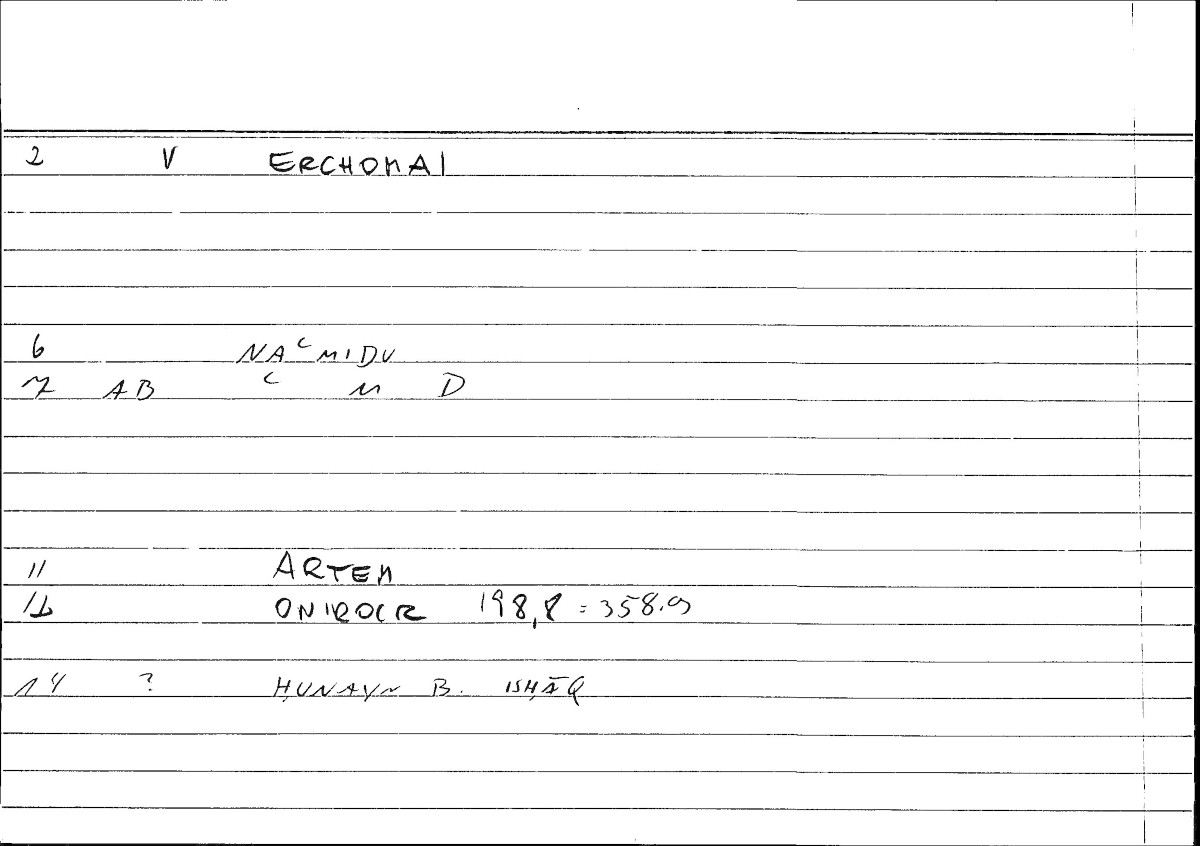 2 V ERCHOMAI
6 NAʿMIDU
7 AB ʿ M D
11 ARTEM
12 ONIROCR 198,8 = 358.9
14 ? ḤUNAYN B. ISḤĀQ